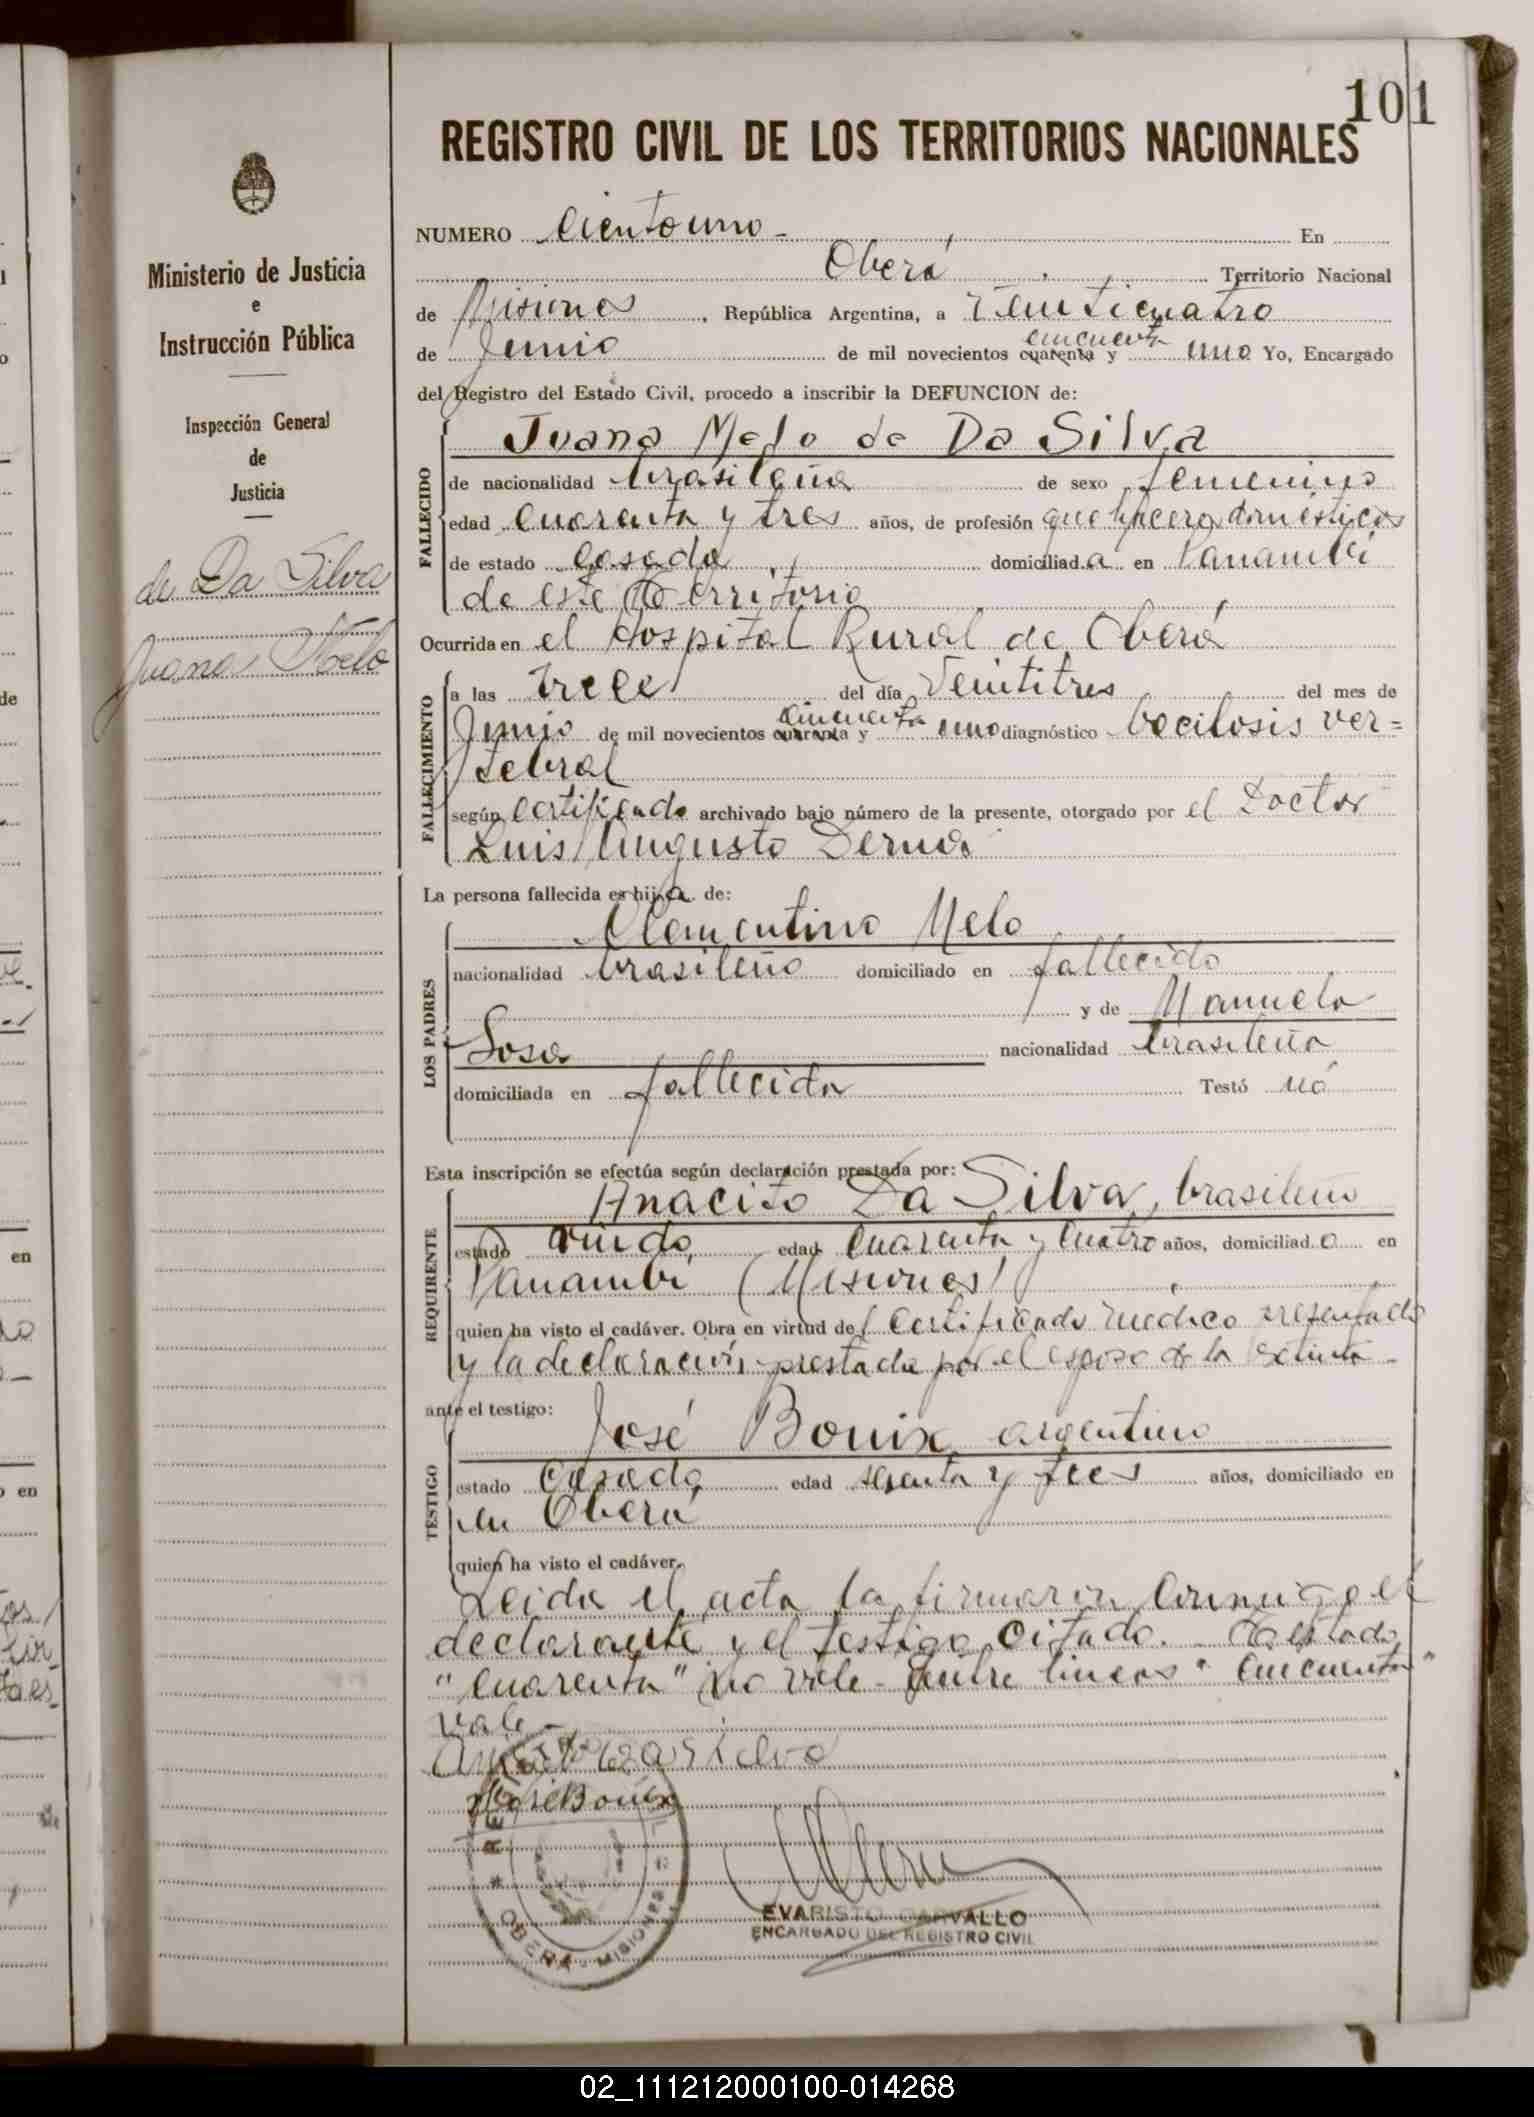 101
REGISTRO CIVIL DE LOS TERRITORIOS NACIONALES
Ministerio de Justicia
e
Instrucción Pública
Inspección General
de
Justicia
de Da Silva
Juana Melo
NUMERO Ciento uno - En
Oberá Territorio Nacional
de Misiones, República Argentina, a Veinticuatro
de Junio de mil novecientos cuarenta y cincuenta uno Yo, Encargado
del Registro del Estado Civil, procedo a inscribir la DEFUNCION de:
FALLECIDO
Juana Melo de Da Silva
de nacionalidad brasileña de sexo femenino
edad cuarenta y tres años, de profesión que haceres domésticos
de estado casada domiciliad.a en Panambí
de este Territorio
Ocurrida en el Hospital Rural de Oberá
FALLECIMIENTO
a las trece del día Veintitres del mes de
Junio de mil novecientos cuarenta y cincuenta uno diagnóstico bacilosis ver=
tebral
según certificado archivado bajo número de la presente, otorgado por el Doctor
Luis Augusto
La persona fallecida es hija de:
LOS PADRES
Clementino Melo
nacionalidad brasileño domiciliado en fallecido
y de Manuela
Sosa nacionalidad brasileña
domiciliada en fallecida Testó nó
Esta inscripción se efectúa según declaración prestada por:
REQUIRENTE
Anacito Da Silva, brasileño
estado viudo edad cuarenta y cuatro años, domiciliad.o en
Panambí (Misiones)
quien ha visto el cadáver. Obra en virtud del certificado médico presentado
y la declaración prestada por el esposo de la extinta -
ante el testigo:
TESTIGO
José Bonix argentino
estado casado edad y tres años, domiciliado en
en Oberá
quien ha visto el cadáver.
Leida el acta la firmaron conmigo el
declarante y el testigo citado. - Testado
"cuarenta" no vale - Entre lineas "cincuenta"
vale -
José Bonix
OBERA - MISIONES
EVARISTO CARVALLO
ENCARGADO DEL REGISTRO CIVIL
02_111212000100-014268